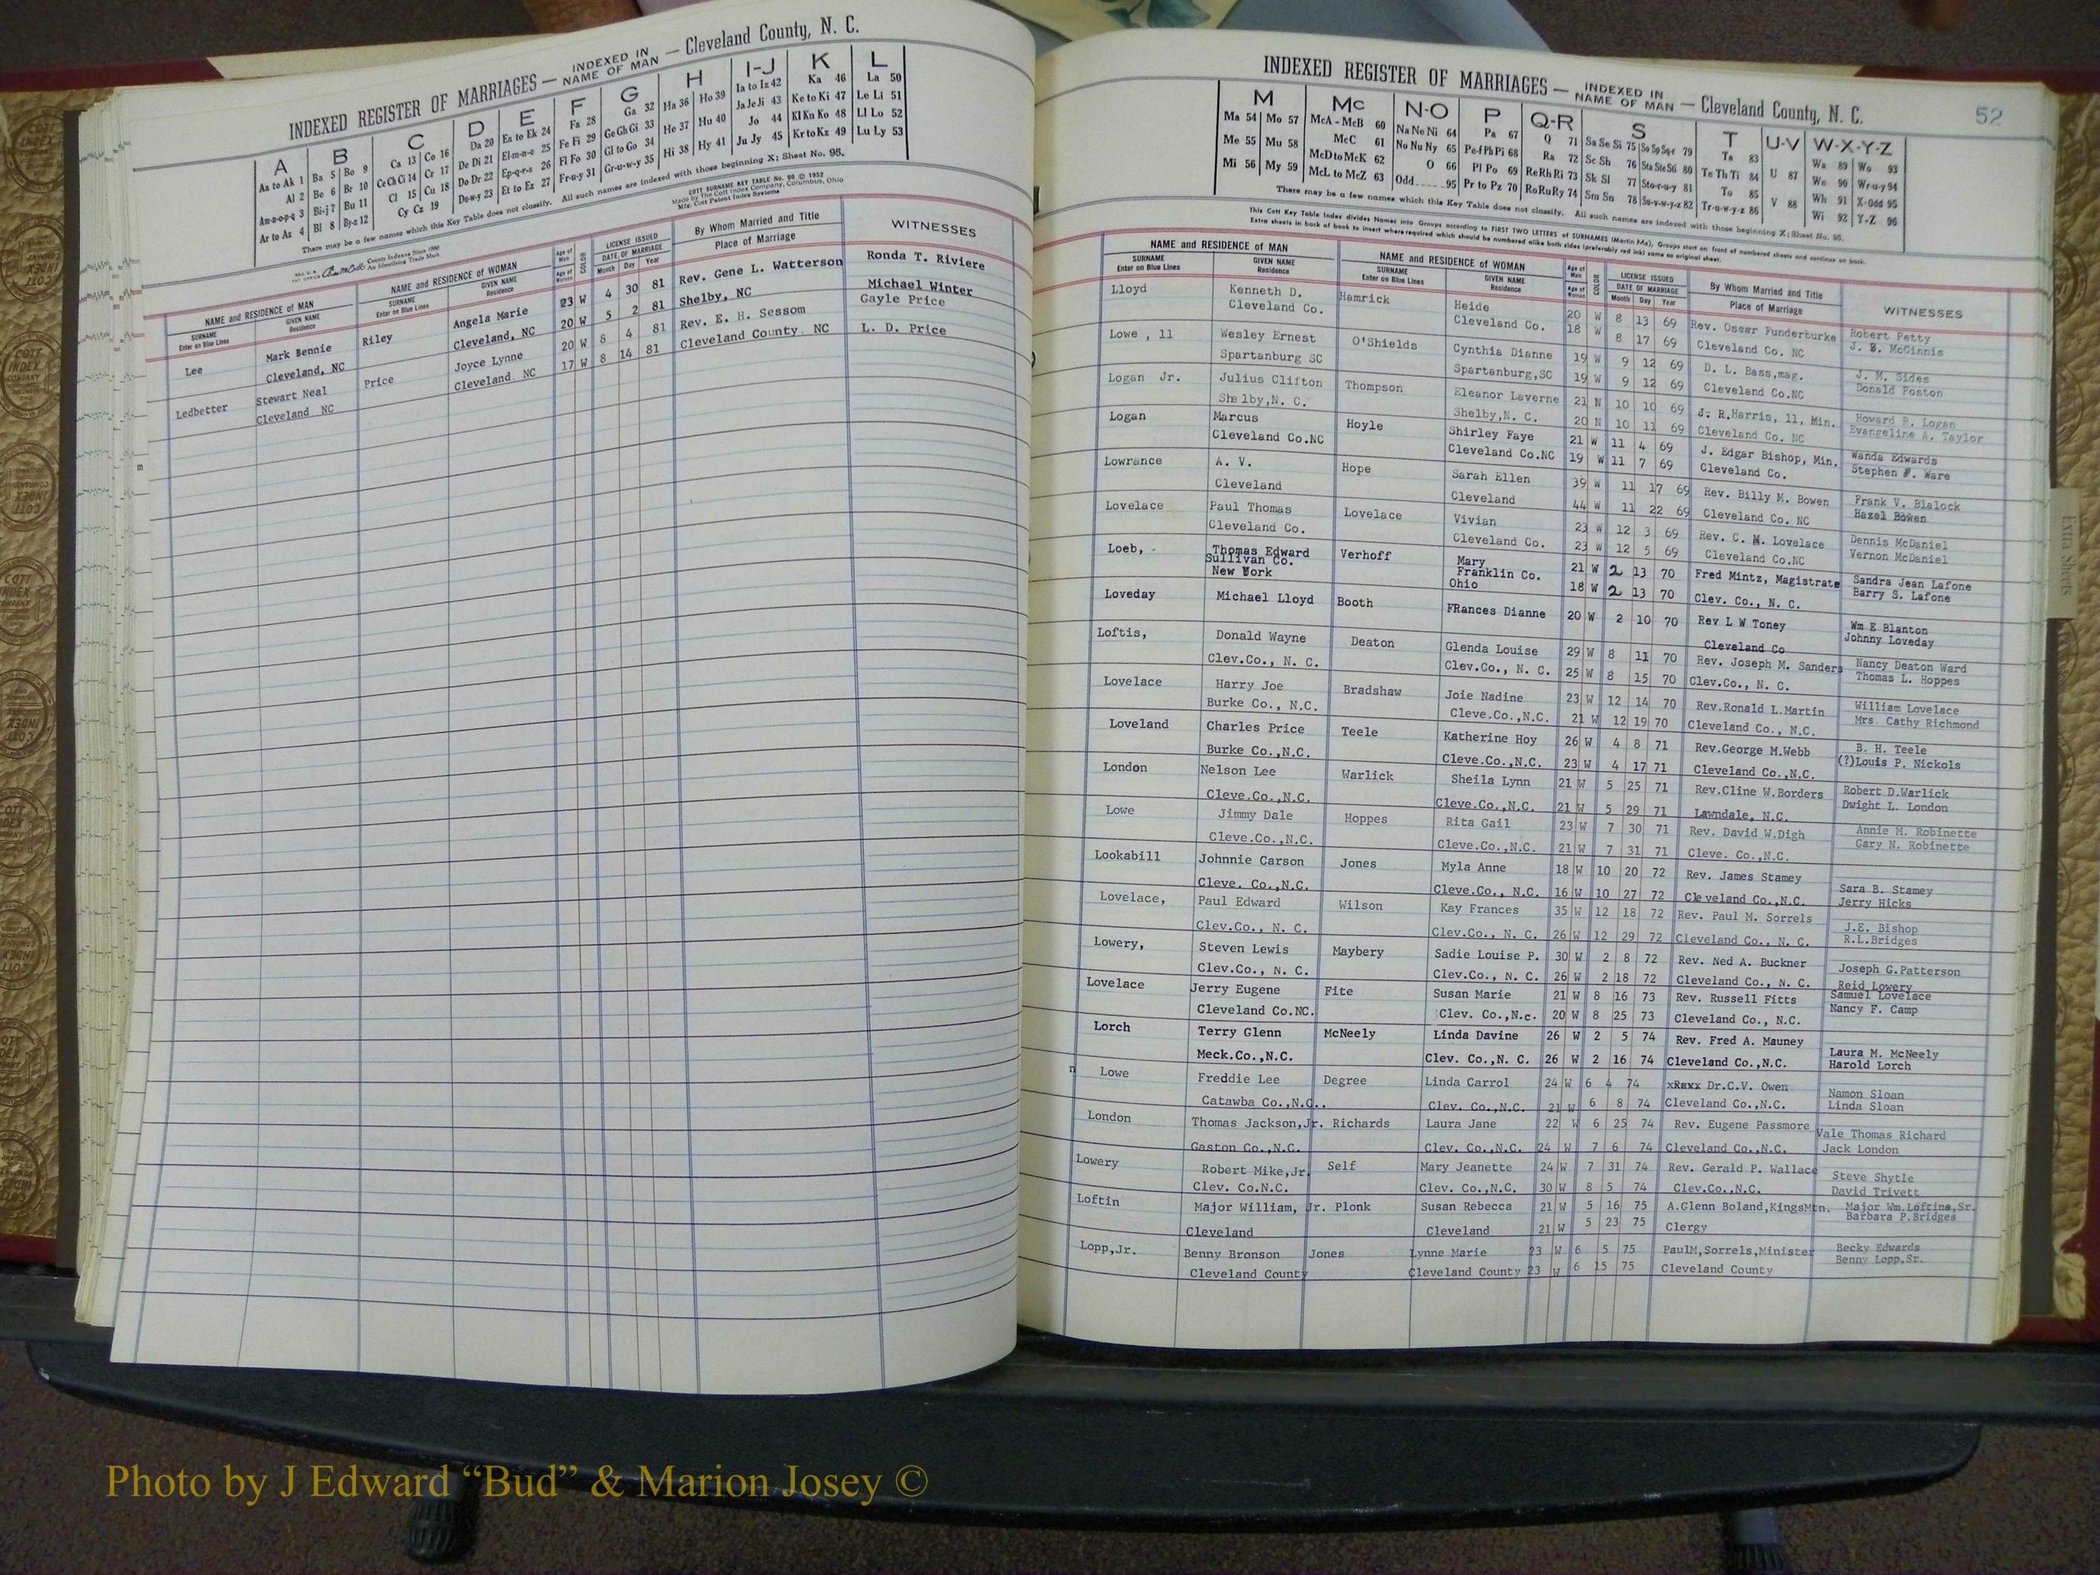 INDEXED REGISTER OF MARRIAGES — INDEXED IN NAME OF MAN — Cleveland County, N. C.
A B C D E F G H I-J K L
Aa to Ak 1 Ba 5 Bo 9 Ca 13 Co 16 Da 20 Ea to Ek 24 Fa 28 Ga 32 Ha 36 Ho 39 Ia to Iz 42 Ka 46 La 50
Al 2 Be 6 Br 10 Ce Ch Ci 14 Cr 17 De Di 21 El-m-n-o 25 Fe Fi 29 Ge Gh Gi 33 He 37 Hu 40 Ja Je Ji 43 Ke to Ki 47 Le Li 51
Am-n-o-p-q 3 Bi-j 7 Bu 11 Cl 15 Cu 18 Do Dr 22 Ep-q-r-s 26 Fl Fo 30 Gl to Go 34 Hi 38 Hy 41 Jo 44 Kl Kn Ko 48 Ll Lo 52
Ar to Az 4 Bl 8 By-z 12 Cy Cz 19 Du-w-y 23 Et to Ez 27 Fr-u-y 31 Gr-u-w-y 35 Ju Jy 45 Kr to Kz 49 Lu Ly 53
There may be a few names which this Key Table does not classify. All such names are indexed with those beginning X; Sheet No. 95.
COTT SURNAME KEY TABLE No. 98 © 1932
Made by The Cott Index Company, Columbus, Ohio
Mfg. Cott Patent Index Systems
County Indexes Since 1888
An Identifying Trade Mark
NAME and RESIDENCE of MAN NAME and RESIDENCE of WOMAN Age of Man Age of Woman COLOR LICENSE ISSUED DATE OF MARRIAGE By Whom Married and Title Place of Marriage WITNESSES
SURNAME Enter on Blue Lines GIVEN NAME Residence SURNAME Enter on Blue Lines GIVEN NAME Residence Month Day Year
Lee Mark Bennie Riley Angela Marie 23 W 4 30 81 Rev. Gene L. Watterson Ronda T. Riviere
Cleveland, NC Cleveland, NC 20 W 5 2 81 Shelby, NC Michael Winter
Ledbetter Stewart Neal Price Joyce Lynne 20 W 8 4 81 Rev. E. H. Sessom Gayle Price
Cleveland NC Cleveland NC 17 W 8 14 81 Cleveland County NC L. D. Price
INDEXED REGISTER OF MARRIAGES — INDEXED IN NAME OF MAN — Cleveland County, N. C. 52
M Mc N-O P Q-R S T U-V W-X-Y-Z
Ma 54 Mo 57 McA - McB 60 Na Ne Ni 64 Pa 67 Q 71 Sa Se Si 75 So Sp Sq-r 79 Ta 83 U 87 Wa 89 Wo 93
Me 55 Mu 58 McC 61 No Nu Ny 65 Pe-f Ph Pi 68 Ra 72 Sc Sh 76 Sta Ste Sti 80 Te Th Ti 84 We 90 Wr-u-y 94
Mi 56 My 59 McD to McK 62 O 66 Pl Po 69 Re Rh Ri 73 Sk Sl 77 Sto-r-u-y 81 To 85 V 88 Wh 91 X-Odd 95
McL to McZ 63 Odd 95 Pr to Pz 70 Ro Ru Ry 74 Sm Sn 78 Su-v-w-y-z 82 Tr-u-w-y-z 86 Wi 92 Y-Z 96
There may be a few names which this Key Table does not classify. All such names are indexed with those beginning X; Sheet No. 95.
This Cott Key Table Index divides Names into Groups according to FIRST TWO LETTERS of SURNAMES (Martin Ma), Groups start on front of numbered sheets and continue on back.
Extra sheets in back of book to insert where required which should be numbered alike both sides (preferably red ink) same as original sheet.
NAME and RESIDENCE of MAN NAME and RESIDENCE of WOMAN Age of Man Age of Woman COLOR LICENSE ISSUED DATE OF MARRIAGE By Whom Married and Title Place of Marriage WITNESSES
SURNAME Enter on Blue Lines GIVEN NAME Residence SURNAME Enter on Blue Lines GIVEN NAME Residence Month Day Year
Lloyd Kenneth D. Hamrick Heide 20 W 8 13 69 Rev. Oscar Funderburke Robert Petty
Cleveland Co. Cleveland Co. 18 W 8 17 69 Cleveland Co. NC J. B. McGinnis
Lowe , 11 Wesley Ernest O'Shields Cynthia Dianne 19 W 9 12 69 D. L. Bass,mag. J. M. Sides
Spartanburg SC Spartanburg,SC 19 W 9 12 69 Cleveland Co.NC Donald Poston
Logan Jr. Julius Clifton Thompson Eleanor Laverne 21 N 10 10 69 J. R.Harris, 11, Min. Howard R. Logan
Shelby,N. C. Shelby,N. C. 20 N 10 11 69 Cleveland Co. NC Evangeline A. Taylor
Logan Marcus Hoyle Shirley Faye 21 W 11 4 69 J. Edgar Bishop, Min. Wanda Edwards
Cleveland Co.NC Cleveland Co.NC 19 W 11 7 69 Cleveland Co. Stephen W. Ware
Lowrance A. V. Hope Sarah Ellen 39 W 11 17 69 Rev. Billy M. Bowen Frank V. Blalock
Cleveland Cleveland 44 W 11 22 69 Cleveland Co. NC Hazel Bowen
Lovelace Paul Thomas Lovelace Vivian 23 W 12 3 69 Rev. C. M. Lovelace Dennis McDaniel
Cleveland Co. Cleveland Co. 23 W 12 5 69 Cleveland Co.NC Vernon McDaniel
Loeb, Thomas Edward Verhoff Mary 21 W 2 13 70 Fred Mintz, Magistrate Sandra Jean Lafone
Sullivan Co. Franklin Co. Barry S. Lafone
New York Ohio 18 W 2 13 70 Clev. Co., N. C.
Loveday Michael Lloyd Booth FRances Dianne 20 W 2 10 70 Rev L W Toney Wm E Blanton
Cleveland Co Johnny Loveday
Loftis, Donald Wayne Deaton Glenda Louise 29 W 8 11 70 Rev. Joseph M. Sanders Nancy Deaton Ward
Clev.Co., N. C. Clev.Co., N. C. 25 W 8 15 70 Clev.Co., N. C. Thomas L. Hoppes
Lovelace Harry Joe Bradshaw Joie Nadine 23 W 12 14 70 Rev.Ronald L.Martin William Lovelace
Burke Co., N.C. Cleve.Co.,N.C. 21 W 12 19 70 Cleveland Co., N.C. Mrs. Cathy Richmond
Loveland Charles Price Teele Katherine Hoy 26 W 4 8 71 Rev.George M.Webb B. H. Teele
Burke Co.,N.C. Cleve.Co.,N.C. 23 W 4 17 71 Cleveland Co.,N.C. (?)Louis P. Nickols
London Nelson Lee Warlick Sheila Lynn 21 W 5 25 71 Rev.Cline W.Borders Robert D.Warlick
Cleve.Co.,N.C. Cleve.Co.,N.C. 21 W 5 29 71 Lawndale, N.C. Dwight L. London
Lowe Jimmy Dale Hoppes Rita Gail 23 W 7 30 71 Rev. David W.Digh Annie M. Robinette
Cleve.Co.,N.C. Cleve.Co.,N.C. 21 W 7 31 71 Cleve. Co.,N.C. Gary N. Robinette
Lookabill Johnnie Carson Jones Myla Anne 18 W 10 20 72 Rev. James Stamey Sara B. Stamey
Cleve. Co.,N.C. Cleve.Co., N.C. 16 W 10 27 72 Cleveland Co.,N.C. Jerry Hicks
Lovelace, Paul Edward Wilson Kay Frances 35 W 12 18 72 Rev. Paul M. Sorrels J.E. Bishop
Clev.Co., N. C. Clev.Co., N. C. 26 W 12 29 72 Cleveland Co., N. C. R.L.Bridges
Lowery, Steven Lewis Maybery Sadie Louise P. 30 W 2 8 72 Rev. Ned A. Buckner Joseph G.Patterson
Clev.Co., N. C. Clev.Co., N. C. 26 W 2 18 72 Cleveland Co., N. C. Reid Lowery
Lovelace Jerry Eugene Fite Susan Marie 21 W 8 16 73 Rev. Russell Fitts Samuel Lovelace
Cleveland Co.NC. Clev. Co.,N.c. 20 W 8 25 73 Cleveland Co., N.C. Nancy F. Camp
Lorch Terry Glenn McNeely Linda Davine 26 W 2 5 74 Rev. Fred A. Mauney Laura M. McNeely
Meck.Co.,N.C. Clev. Co.,N. C. 26 W 2 16 74 Cleveland Co.,N.C. Harold Lorch
n Lowe Freddie Lee Degree Linda Carrol 24 W 6 4 74 xRexx Dr.C.V. Owen Namon Sloan
Catawba Co.,N.C.. Clev. Co.,N.C. 21 W 6 8 74 Cleveland Co.,N.C. Linda Sloan
London Thomas Jackson,Jr. Richards Laura Jane 22 W 6 25 74 Rev. Eugene Passmore Vale Thomas Richard
Gaston Co.,N.C. Clev. Co.,N.C. 24 W 7 6 74 Cleveland Co.,N.C. Jack London
Lowery Robert Mike,Jr. Self Mary Jeanette 24 W 7 31 74 Rev. Gerald P. Wallace Steve Shytle
Clev. Co.N.C. Clev. Co.,N.C. 30 W 8 5 74 Clev.Co.,N.C. David Trivett
Loftin Major William, Jr. Plonk Susan Rebecca 21 W 5 16 75 A.Glenn Boland,KingsMtn. Major Wm.Loftins,Sr.
Cleveland Cleveland 21 W 5 23 75 Clergy Barbara P.Bridges
Lopp,Jr. Benny Bronson Jones Lynne Marie 23 W 6 5 75 PaulM,Sorrels,Minister Becky Edwards
Cleveland County Cleveland County 23 W 6 15 75 Cleveland County Benny Lopp,Sr.
Extra Sheets
Photo by J Edward “Bud” & Marion Josey ©